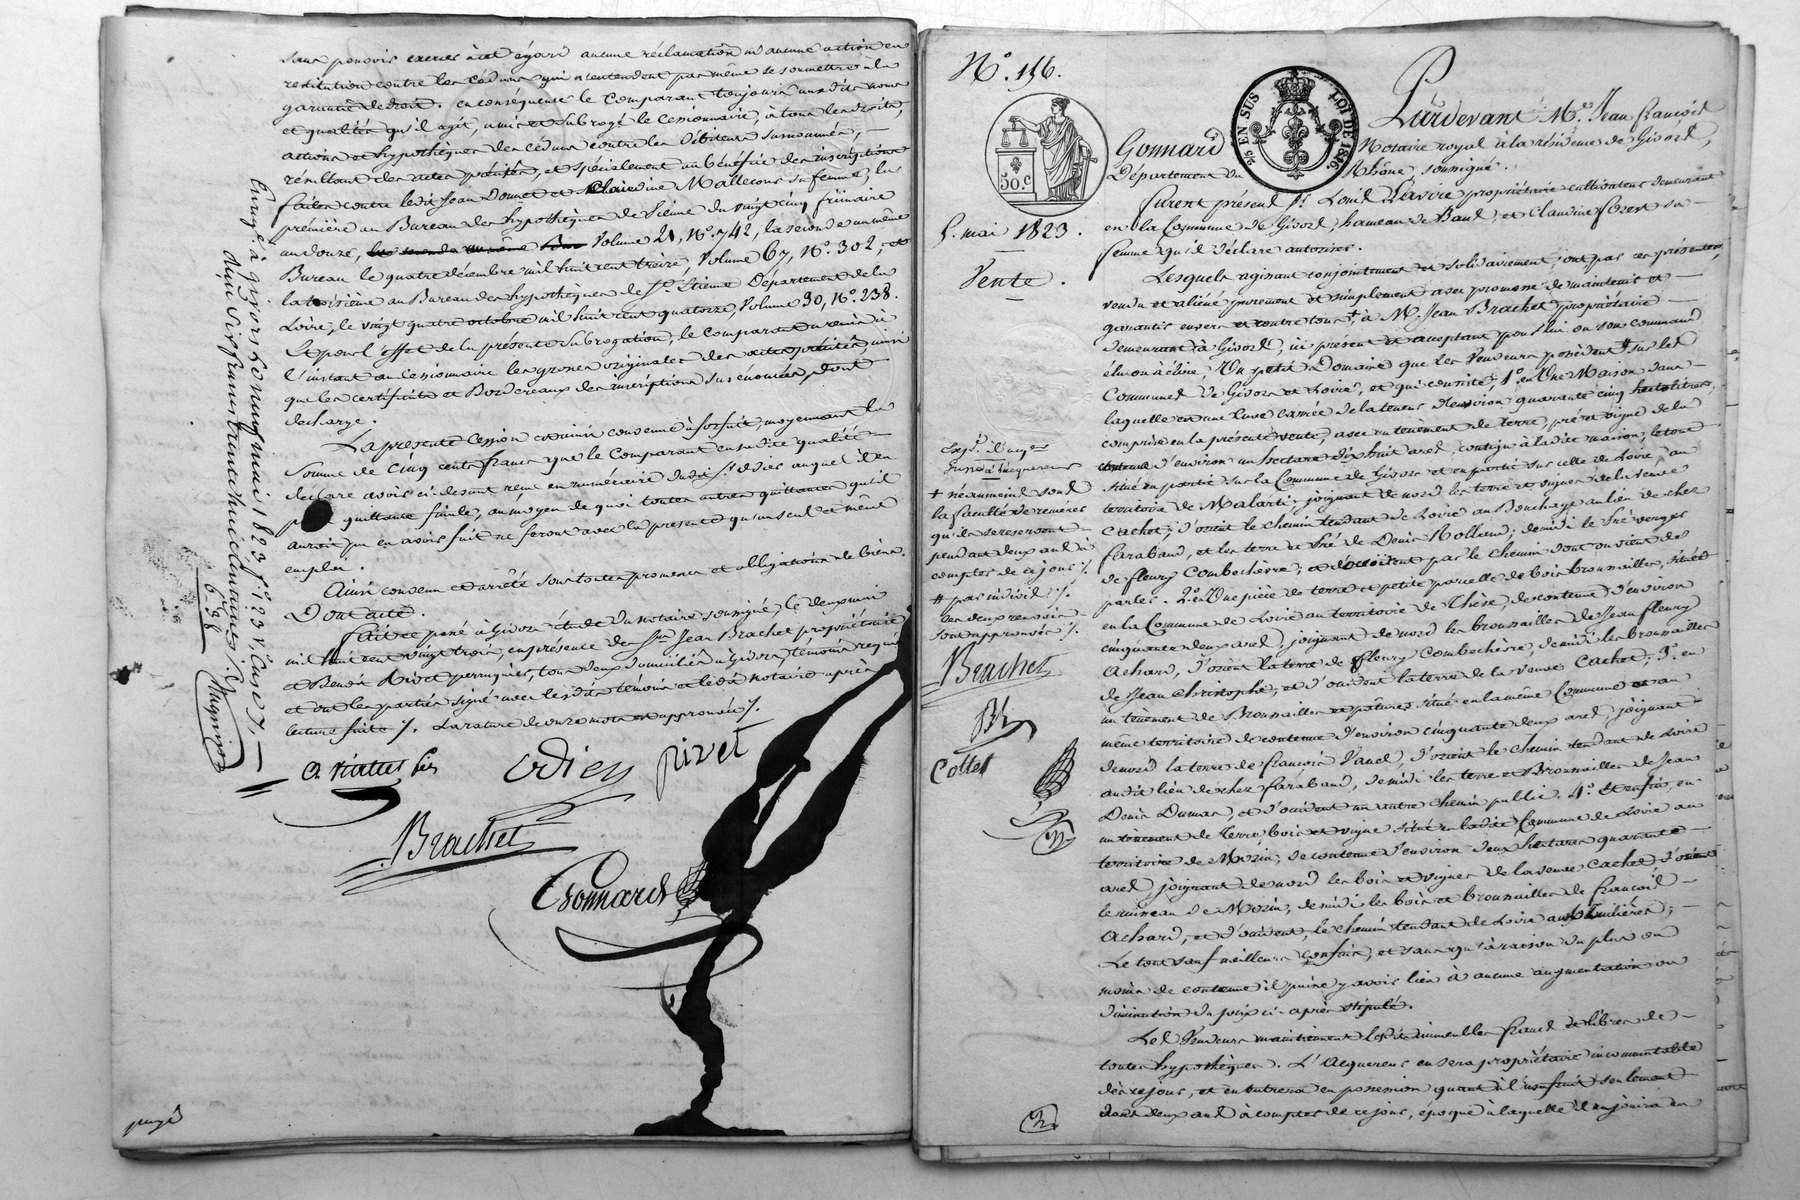 sans pouvoir exercer à cet égard aucune réclamation ni aucune action en
restitution contre les cédans qui n'entendent pas même se soumettre à la
garantie de droit. en conséquence le Comparant toujours auxdits noms
et qualités qu'il agit, a mis et subrogé le Cessionnaire, à tous les droits,
actions et hypothèques des cédans contre les Débiteurs surnommés, —
résultant des actes précités, et spécialement au bénéfice des inscriptions
faites contre ledit Jean Donnet et Claudine Mallecour sa femme, la
première au Bureau des hypothèques de Vienne du vingt cinq frimaire
an douze, Volume 21, N.° 742, la seconde au même
Bureau le quatre décembre mil huit cent treize, Volume 67, N.° 302, et
la troisième au Bureau des hypothèques de S.t Etienne Département de la
Loire, le vingt quatre octobre mil huit cent quatorze, Volume 30, N.° 238.
Et pour l'effet de la présente Subrogation, le Comparant a remis à
l'instant au Cessionnaire les grosses originales des actes précités, ainsi
que les certificats et Bordereaux des inscriptions sus énoncées, dont
décharge.
La présente Cession ainsi convenue à forfait, moyennant la
Somme de Cinq cents francs que le Comparant en sadite qualité —
déclare avoir ci-devant reçue en numéraire dudit S.r Odier auquel il en
passe quittance finale, au moyen de quoi toutes autres quittances qu'il
auroit pu en avoir fait ne feront avec la présente qu'un seul et même
emploi.
Ainsi convenu et arrêté sous toutes promesses et obligations de biens.
Dont acte.
Fait et passé à Givors étude du notaire soussigné, le deux mai
mil huit cent vingt trois, en présence de S.rs Jean Brachet propriétaire
et Benoit Rivet perruquier, tous deux domiciliés à Givors, témoins requis
et ont les parties signé avec lesdits témoins et ledit notaire après
lecture faite ./. La rature de onze mots est approuvée ./.
Odier
rivet
Brachet
Gonnard
Enregé à givors le neuf mai 1823 f.° 123 V.° Case 7, —
N.° 156.
50 c
5/5 EN SUS
LOI DE 1816.
5. mai 1823.
Vente.
Pardevant M.e Jean François
Gonnard Notaire royal à la résidence de Givors,
Département du Rhône, soussigné.
Furent présens S.r Louis Lavire propriétaire cultivateur demeurant
en la Commune de Givors, hameau de Bans, et Claudine Forest sa —
femme qu'il déclare autoriser.
Lesquels agissant conjointement et solidairement, ont par ces présentes,
vendu et aliéné purement et simplement avec promesse de maintenir et —
garantir envers et contre tous †, à M. Jean Brachet propriétaire —
demeurant à Givors, ici présent et acceptant pour lui ou son command
élu ou à élire. Un petit Domaine que les Vendeurs possèdent # sur les
Communes de Givors et Loire, et qui consiste, 1.° en Une Maison dans —
laquelle est une Cuve cerclée de la teneur d'environ quarante cinq hectolitres,
comprise en la présente vente, avec un tenement de terre, pré et vigne de la
contenue d'environ un hectare dix huit ares, contigu à ladite maison, le tout
situé en partie sur la Commune de Givors et en partie sur celle de Loire, au
territoire de Malarti, joignant de nord les terre et vignes de la veuve
Cachet, d'orient le chemin tendant de Loire au Bouchage au lieu de chez
Faraband, et les terre et Pré de Denis Rolland, de midi le Pré verger
de fleury Combechère, et d'occident par le chemin dont on vient de
parler. 2.° en Une pièce de terre et petite parcelle de bois broussailles, située
en la Commune de Loire au territoire de Chèse, de contenue d'environ
cinquante deux ares, joignant de nord les broussailles de Jean fleury
Achard, d'orient la terre de fleury Combechère, de midi les broussailles
de Jean Christophe, et d'occident la terre de la veuve Cachet; 3.° en
un tènement de Broussailles et pâture situé en la même Commune et au
même territoire de contenue d'environ cinquante deux ares, joignant —
de nord la terre de François Vanel, d'orient le chemin tendant de Loire
audit lieu de chez Faraband, de midi les terre et Broussailles de Jean
Denis Dumas, et d'occident un autre chemin public. 4.° Et enfin, en
un tènement de Terre, bois et vigne situé en ladite Commune de Loire au
territoire de Morin, de contenue d'environ deux hectares quarante —
ares joignant de nord les bois et vignes de la veuve Cachet, d'orient
le ruisseau de Morin, de midi les bois et broussailles de François —
Achard, et d'occident, le chemin tendant de Loire aux Tuilières; —
Le tout sauf meilleurs confins, et sans qu'à raison du plus ou
moins de contenue il puisse y avoir lieu à aucune augmentation ou
diminution du prix ci-après stipulé.
Les Vendeurs maintiennent lesdits immeubles francs et libres de —
toutes hypothèques. L'Acquéreur en sera propriétaire incommutable
dès ce jour, et en entrera en possession quant à l'usufruit seulement
dans deux ans à compter de ce jour, époque à laquelle il en jouira en
† néanmoins sous
la faculté de réméré
qu'ils se réservent —
pendant deux ans à
compter de ce jour ./.
# par indivis ./.
les deux renvois
sont approuvés ./.
Brachet
Collet